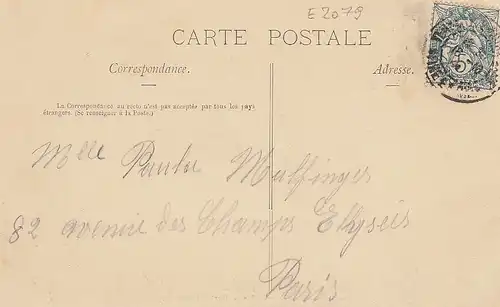 E 2079
CARTE POSTALE
Correspondance.
Adresse.
La Correspondance au recto n'est pas acceptée par tous les pays
étrangers. (Se renseigner à la Poste.)
Mlle
82 avenue des Champs Elyseés
Paris